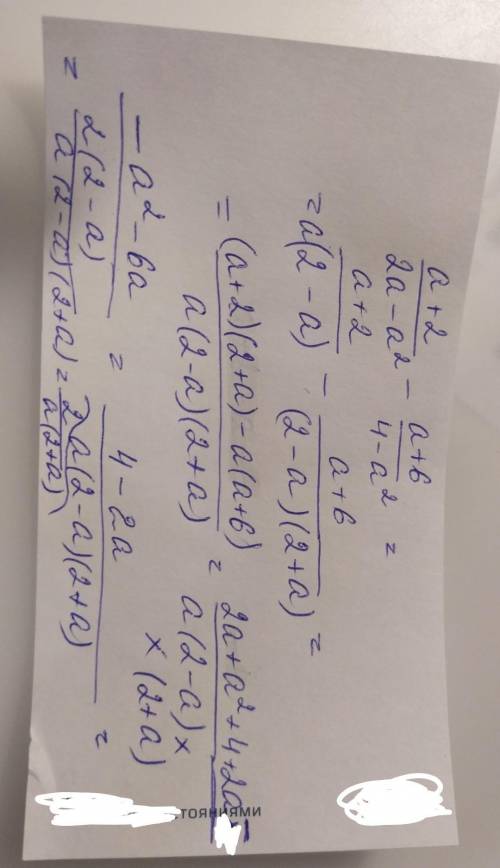 a+2/2a-a² - a+6/4-a² =
= a+2/a(2-a) - a+6/(2-a)(2+a) =
= (a+2)(2+a)-a(a+6)/a(2-a)(2+a) = 2a+a²+4+2a-/a(2-a)×
×(2+a)
-a²-6a/ = 4-2a/a(2-a)(2+a) =
= 2(2-a)/a(2-a)(2+a) = 2/a(2+a)
тояниями